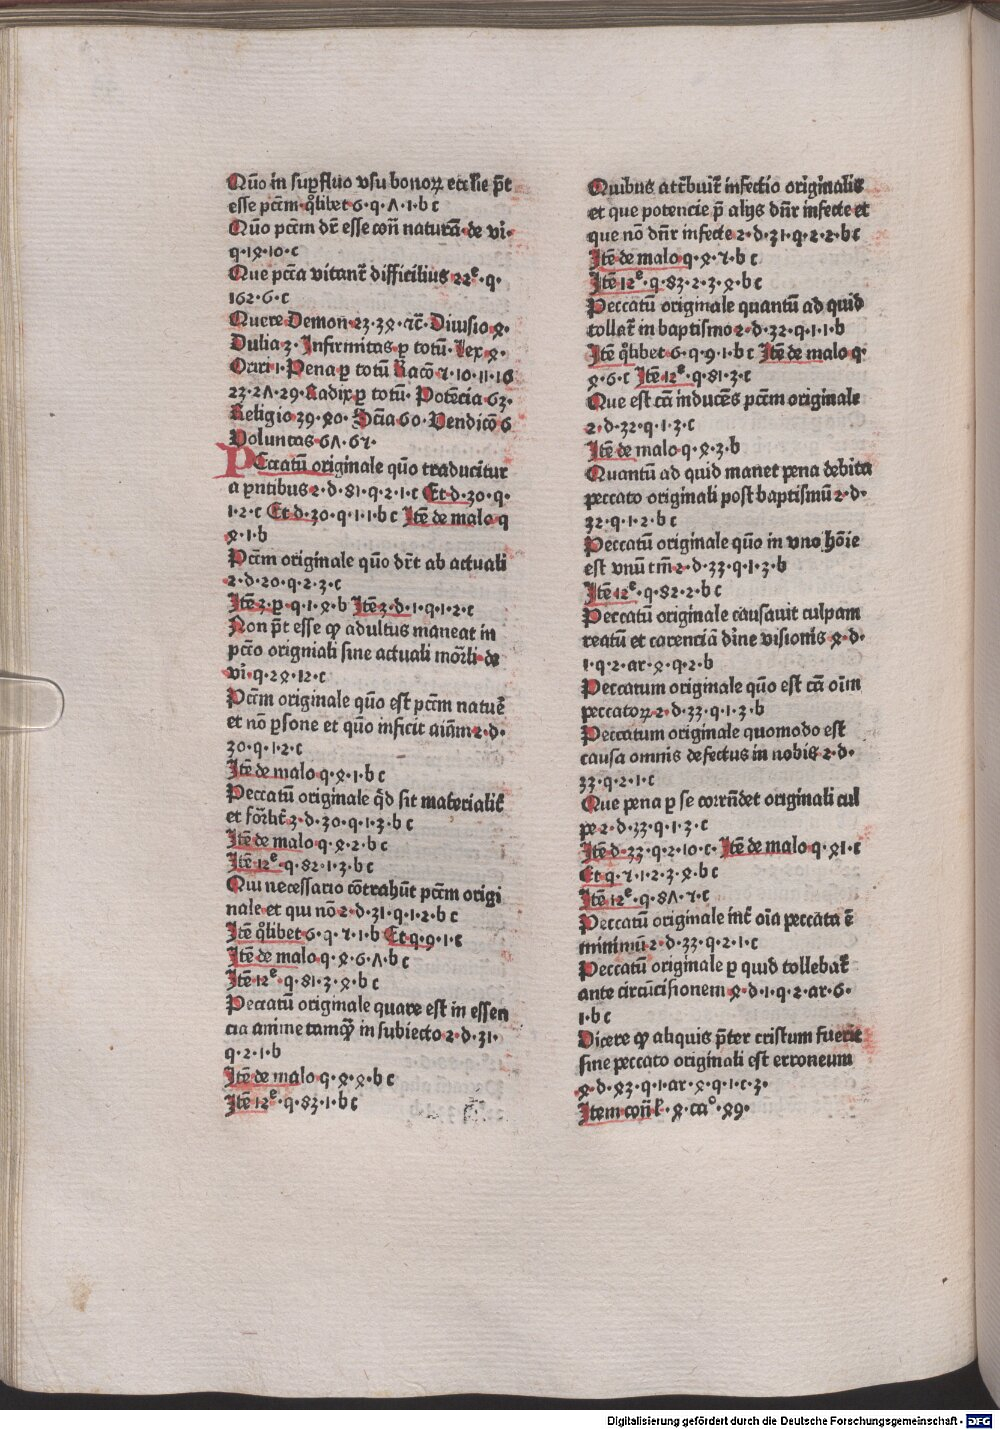 Quō in suꝑfluo vsu bonoꝝ ecclīe p̄t
esse pctm̄·qͦlibet·6·q·Λ·1·b c
Quō pctm̄ dr̄ esse con̄ naturā·de vi·
q·1ꝝ·10·c
Que pctā vitant̄ difficilius 22ᵉ·q·
162·6·c
Quere Demon 23·3ꝝ·⁊c̄· Diuisio ꝝ·
Dulia 3· Infirmitas ꝑ totū· Lex ꝝ·
Oriri 1· Pena ꝑ totū Racō 7·10·11·16
23·2Λ·29·Radix ꝑ totū· Potēcia 63·
Religio 39·ꝝ0· Sciā 60·Vendicō 6
Voluntas 6Λ·67·
PEccatū originale quō traducitur
a pn̄tibus 2·d·81·q·2·1·c Et d·30·q·
1·2·c Et d·30·q·1·1·b c Itē de malo q
ꝝ·1·b
Pctm̄ originale quō dr̄t ab actuali
2·d·20·q·2·3·c
Itē 3·p·q·1·ꝝ·b Itē 3·d·1·q·1·2·c
Non p̄t esse ꝙ adultus maneat in
pctō origniali sine actuali mōrli·de
vi·q·2ꝝ·12·c
Pctm̄ originale quō est pctm̄ natuē
et nō ꝑsone et quō inficit aiām 2·d·
30·q·1·2·c
Itē de malo q·ꝝ·1·b c
Peccatū originale qͥd sit materialit̄
et for̄lit̄ 2·d·30·q·1·3·b c
Itē de malo q·ꝝ·2·b c
Itē 12ᵉ·q·82·1·3·b c
Qui necessario cōtrahūt pctm̄ origi
nale et qui nō 2·d·31·q·1·2·b c
Itē qͦlibet 6·q·7·1·b Et q·9·1·c
Itē de malo q·ꝝ·6·Λ·b c
Itē 12ᵉ·q·81·3·ꝝ·b c
Peccatū originale quare est in essen
cia anime tamqͣ in subiecto 2·d·31·
q·2·1·b
Itē de malo q·ꝝ·ꝝ·b c
Itē 12ᵉ·q·83·1·b c
Quibus atr̄buit̄ infectio originalis
et que potencie p̄ alijs dn̄r infecte et
que nō dn̄r infecte 2·d·31·q·2·2·b c
Itē de malo q·ꝝ·7·b c
Itē 12ᵉ·q·83·2·3·ꝝ·b c
Peccatū originale quantū ad quid
tollat̄ in baptismo 2·d·32·q·1·1·b
Itē qͦlibet 6·q·9·1·b c Itē de malo q·
ꝝ·6·c Itē 12ᵉ·q·81·3·c
Que est cā inducēs pctm̄ originale
2·d·32·q·1·3·c
Itē de malo q·ꝝ·3·b
Quantū ad quid manet pena debita
peccato originali post baptismū 2·d·
32·q·1·2·b c
Peccatū originale quō in vno hōie
est vnū tm̄ 2·d·33·q·1·3·b
Itē 12ᵉ·q·82·2·b c
Peccatū originale causauit culpam
reatū et carenciā dīne visionis ꝝ·d·
1·q·2·ar·ꝝ·q·2·b
Peccatum originale quō est cā oīm
peccatoꝝ 2·d·33·q·1·3·b
Peccatum originale quomodo est
causa omnis defectus in nobis 2·d·
33·q·2·1·c
Que pena ꝑ se corrn̄det originali cul
pe 2·d·33·q·1·3·c
Itē d·33·q·2·10·c· Itē de malo q·ꝝ1·c
Et q·7·1·2·3·ꝝ·b c
Itē 12ᵉ·q·8Λ·7·c
Peccatū originale int̄ oīa peccata ē
minimū 2·d·33·q·2·1·c
Peccatū originale ꝑ quid tollebat̄
ante circūcisionem ꝝ·d·1·q·2·ar·6·
1·b c
Dicere ꝙ aliquis p̄ter cristum fuerit
sine peccato originali est erroneum
ꝝ·d·ꝝ3·q·1·ar·ꝝ·q·1·c·3·
Item con̄ l̄·ꝝ·caº·ꝝ9·
Digitalisierung gefördert durch die Deutsche Forschungsgemeinschaft - DFG